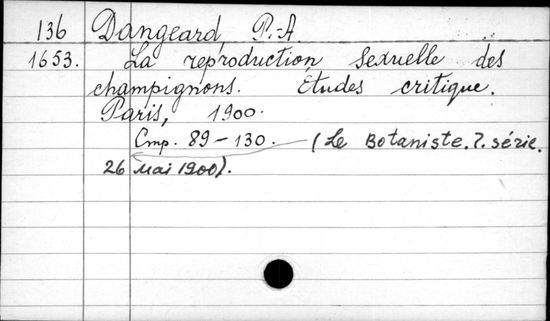 136 Dangeard P.-A.
1653. La reproduction sexuelle des
champignons. Études critique.
Paris, 1900.
Стр. 89-130. (Le Botaniste. 7. série.
26 Mai 1900).